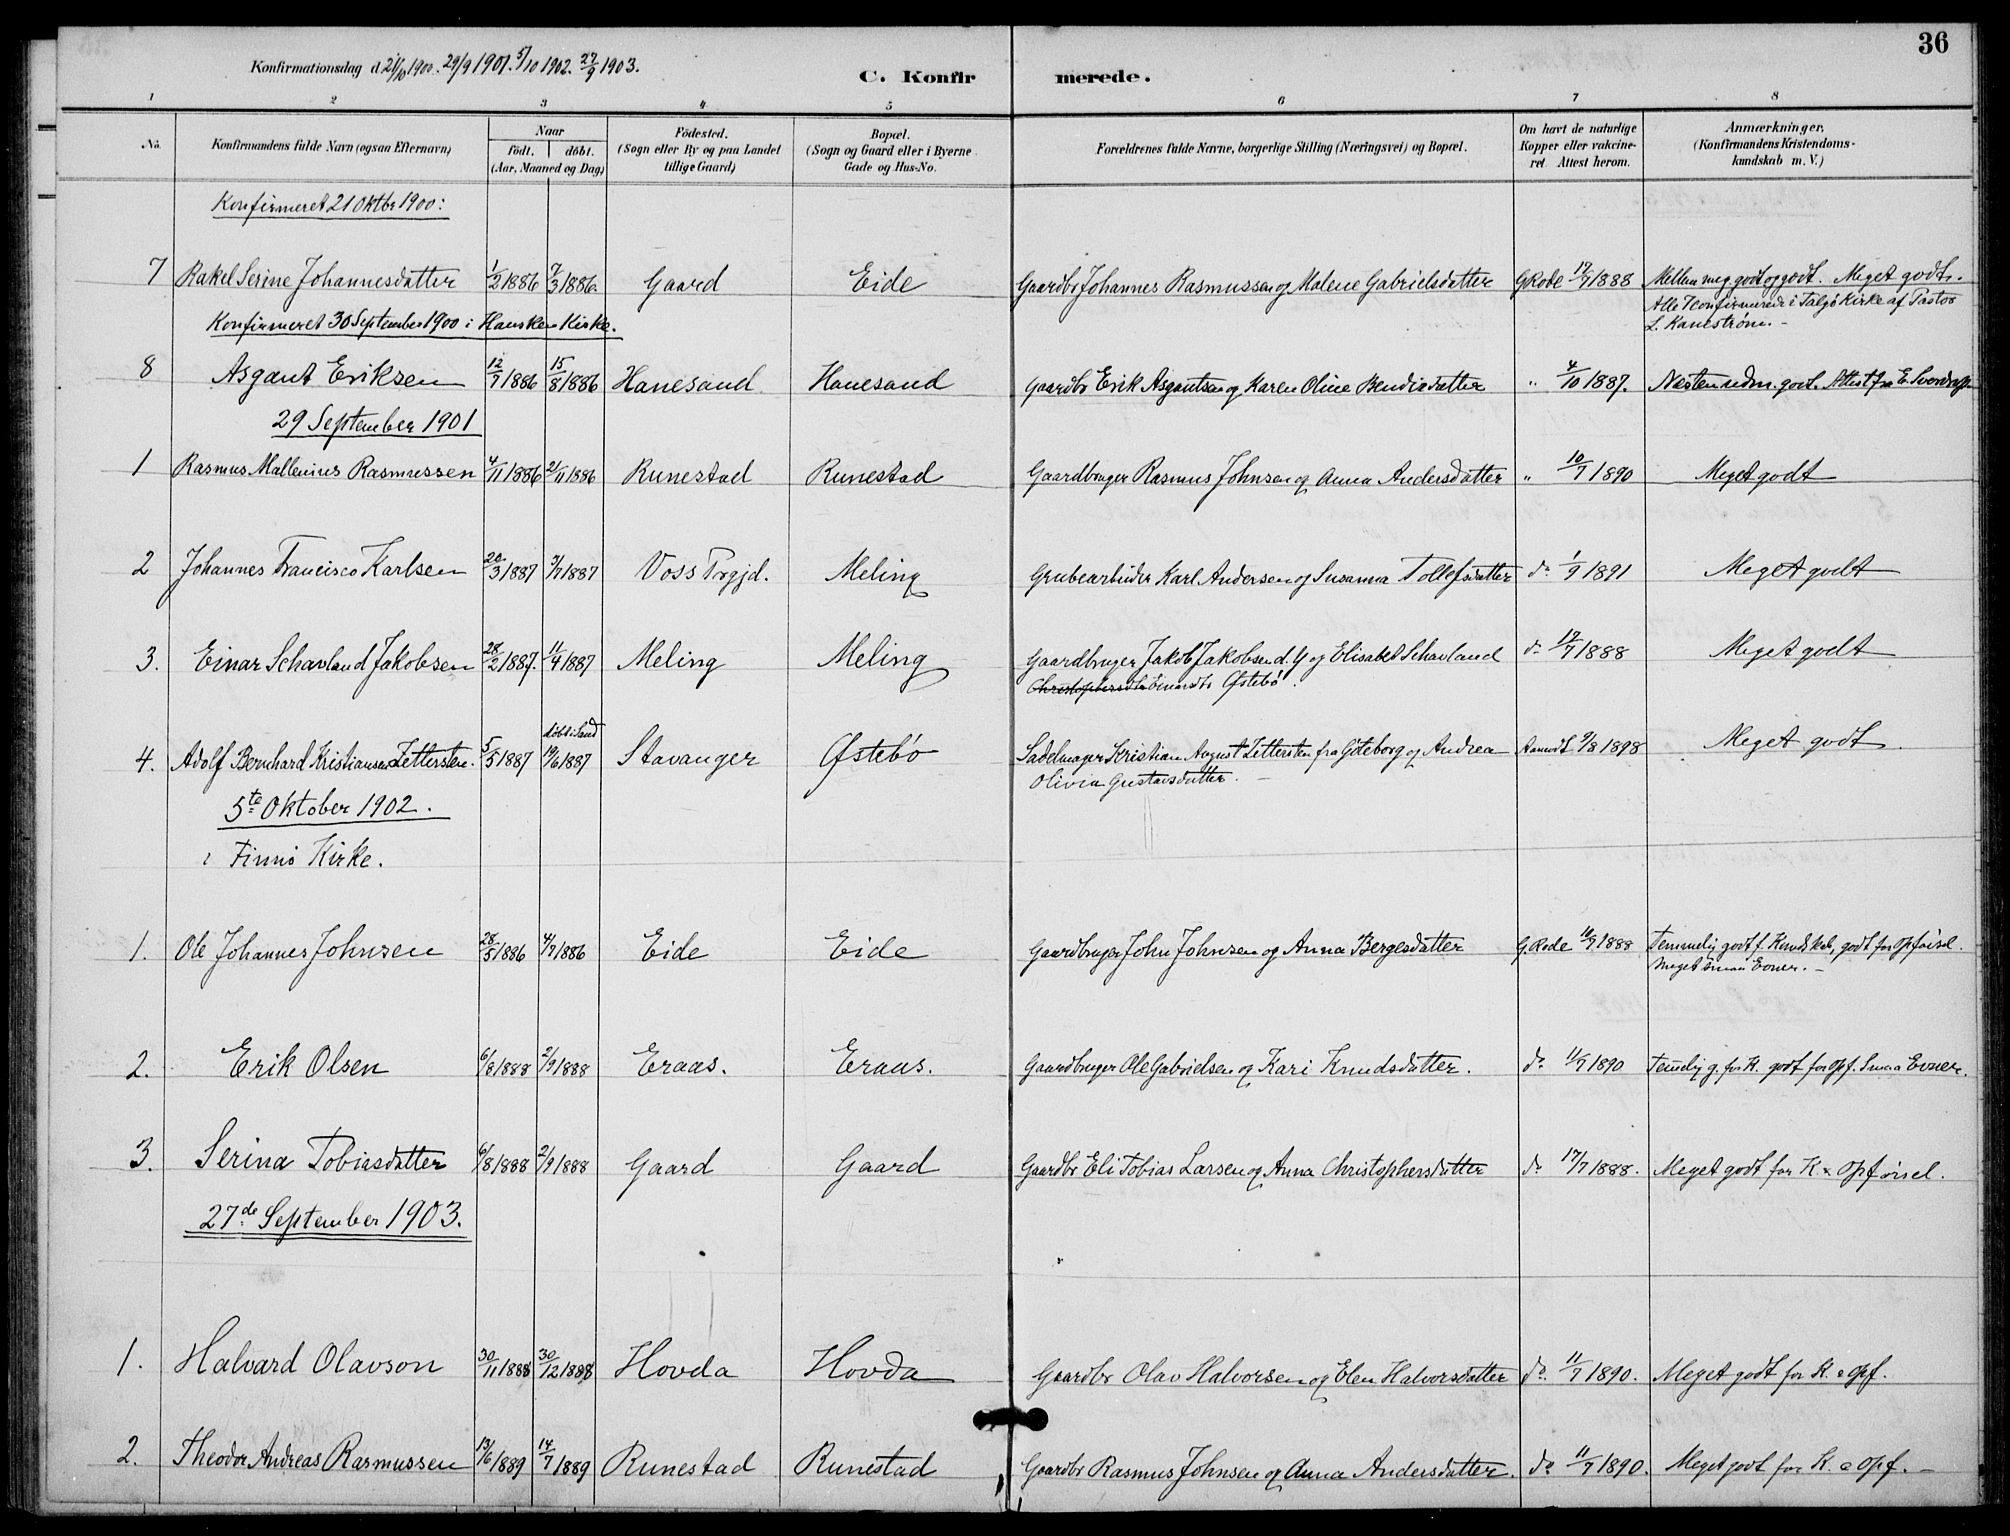 36
Konfirmationsdag d. 21/10 1900. 29/9 1901. 5/10 1902. 27/9 1903.
C. Konfirmerede.
1 2 3 4 5 6 7 8
No.
Konfirmandens fulde Navn (ogsaa Efternavn)
Naar
födt. döbt.
(Aar, Maaned og Dag)
Födested.
(Sogn eller By og paa Landet
tillige Gaard)
Bopæl.
(Sogn og Gaard eller i Byerne
Gade og Hus-No.
Forældrenes fulde Navne, borgerlige Stilling (Næringsvei) og Bopæl.
Om havt de naturlige
Kopper eller vakcine-
ret. Attest herom.
Anmærkninger,
(Konfirmandens Kristendoms-
kundskab m. V.)
Konfirmeret 21 Oktbr 1900:
7 Rakel Serine Johannesdatter 1/2 1886 7/3 1886 Gaard Eide Gaardbr Johannes Rasmussen og Malene Gabrielsdatter G Rode 17/7 1888 Mellem meg godt og godt. Meget godt.
Alle konfirmerede i Talgö Kirke af Pastor
L. Kanestrøm.
Konfirmeret 30 September 1900 i Hausken Kirke.
8 Asgaut Eriksen 12/7 1886 15/8 1886 Hanesand Hanesand Gaardbr Erik Asgautsen og Karen Oline Bendixdatter " 4/10 1887. Næsten udm. godt. Attest fra E. Sverdrup
29 September 1901
1 Rasmus Mallenius Rasmussen 4/11 1886 21/11 1886 Runestad Runestad Gaardbruger Rasmus Johnsen og Anna Andersdatter " 10/7 1890 Meget godt
2 Johannes Francisco Karlsen 20/3 1887 3/7 1887 Voss Prgjd. Meling Grubearbeider Karl Andersen og Susanna Tollefsdatter do 1/9 1891 Meget godt
3. Einar Schavland Jakobsen 28/2 1887. 11/4 1887 Meling Meling Gaardbruger Jakob Jakobsen d. Y og Elisabet Schavland do 17/7 1888 Meget godt
Einardtr Østebö.
4. Adolf Bernhard Kristiansen Zettersten. 5/5 1887 döbt i Sand 19/6 1887 Stavanger Østebö Sadelmager Kristian August Zettersten fra Göteborg og Andrea Aamodt 9/8 1898 Meget godt.
Olivia Gustavsdatter.
5te Oktober 1902.
i Finnö Kirke.
1. Ole Johannes Johnsen 28/5 1886 4/7 1886 Eide Eide Gaardbruger John Johnsen og Anna Bergesdatter G. Rode 1888 Temmelig godt f. Kundskab, godt for opförsel.
Meget smaa Evner.
2. Erik Olsen 6/8 1888 2/9 1888 Eraas. Eraas. Gaardbruger Ole Gabrielsen og Kari Knudsdatter. do 11/7 1890 Temelig g. for K. godt for opf. Smaa Evner.
3. Serina Tobiasdatter 6/8 1888 2/9 1888 Gaard Gaard Gaardbr Eli Tobias Larsen og Anna Christophersdatter do 17/7 1888. Meget godt for K. & Opförsel.
27de September 1903.
1. Halvard Olavson 30/11 1888 30/12 1888 Hovda Hovda Gaardbr Olav Halvorsen og Elen Halvorsdatter do. 11/7 1890. Meget godt for K. & opf.
2. Theodor Andreas Rasmussen 13/6 1889 14/7 1889 Runestad Runestad Gaardbr Rasmus Johnsen og Anna Andersdatter. do 11/7 1890. Meget godt for K. & opf.